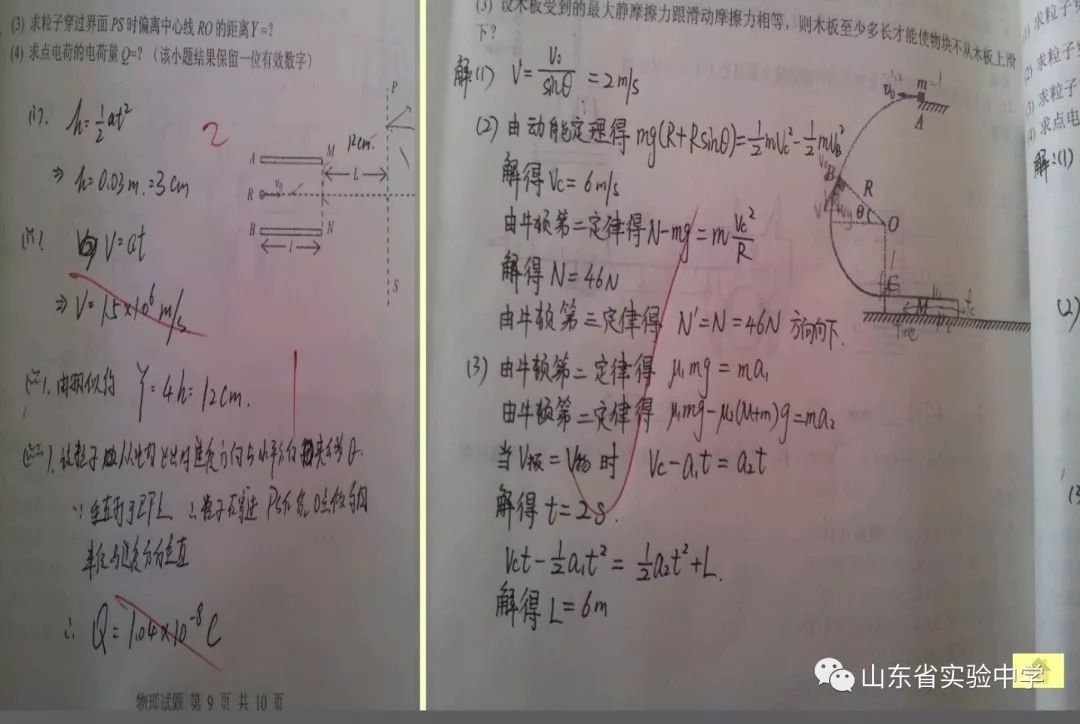 (3) 求粒子穿过界面 PS 时偏离中心线 RO 的距离Y=?
(4) 求点电荷的电荷量 Q=? (该小题结果保留一位有效数字)
h=½at²
2
⇒ h=0.03m=3cm
V=at
⇒ V=1.5×10⁶m/s
Y=4h=12cm.
∴ Q=1.04×10⁻⁸C
P
12cm
A
M
L
R
v₀
B
N
l
S
物理试题 第 9 页 共 10 页
(3) 设木板受到的最大静摩擦力跟滑动摩擦力相等,则木板至少多长才能使物块不从木板上滑
下?
解:(1) V=V₀/sinθ=2m/s
(2) 由动能定理得 mg(R+Rsinθ)=½mVc²-½mVB²
解得Vc=6m/s
由牛顿第二定律得N-mg=mVc²/R
解得N=46N
由牛顿第三定律得 N'=N=46N 方向向下.
(3) 由牛顿第二定律得 μ₁mg=ma₁
由牛顿第二定律得 μ₁mg-μ₂(M+m)g=ma₂
当V板=V物时 Vc-a₁t=a₂t
解得t=2s.
Vct-½a₁t²=½a₂t²+L.
解得L=6m
m
v₀
A
B
R
θ
O
C
M
求粒子
(2) 求粒子
(3) 求粒子
(4) 求点电
解:(1)
(2)
山东省实验中学